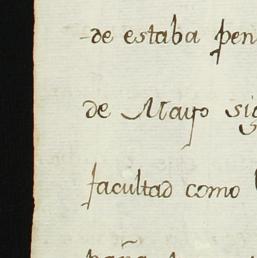 -de estaba pen
de Mayo sig
facultad como